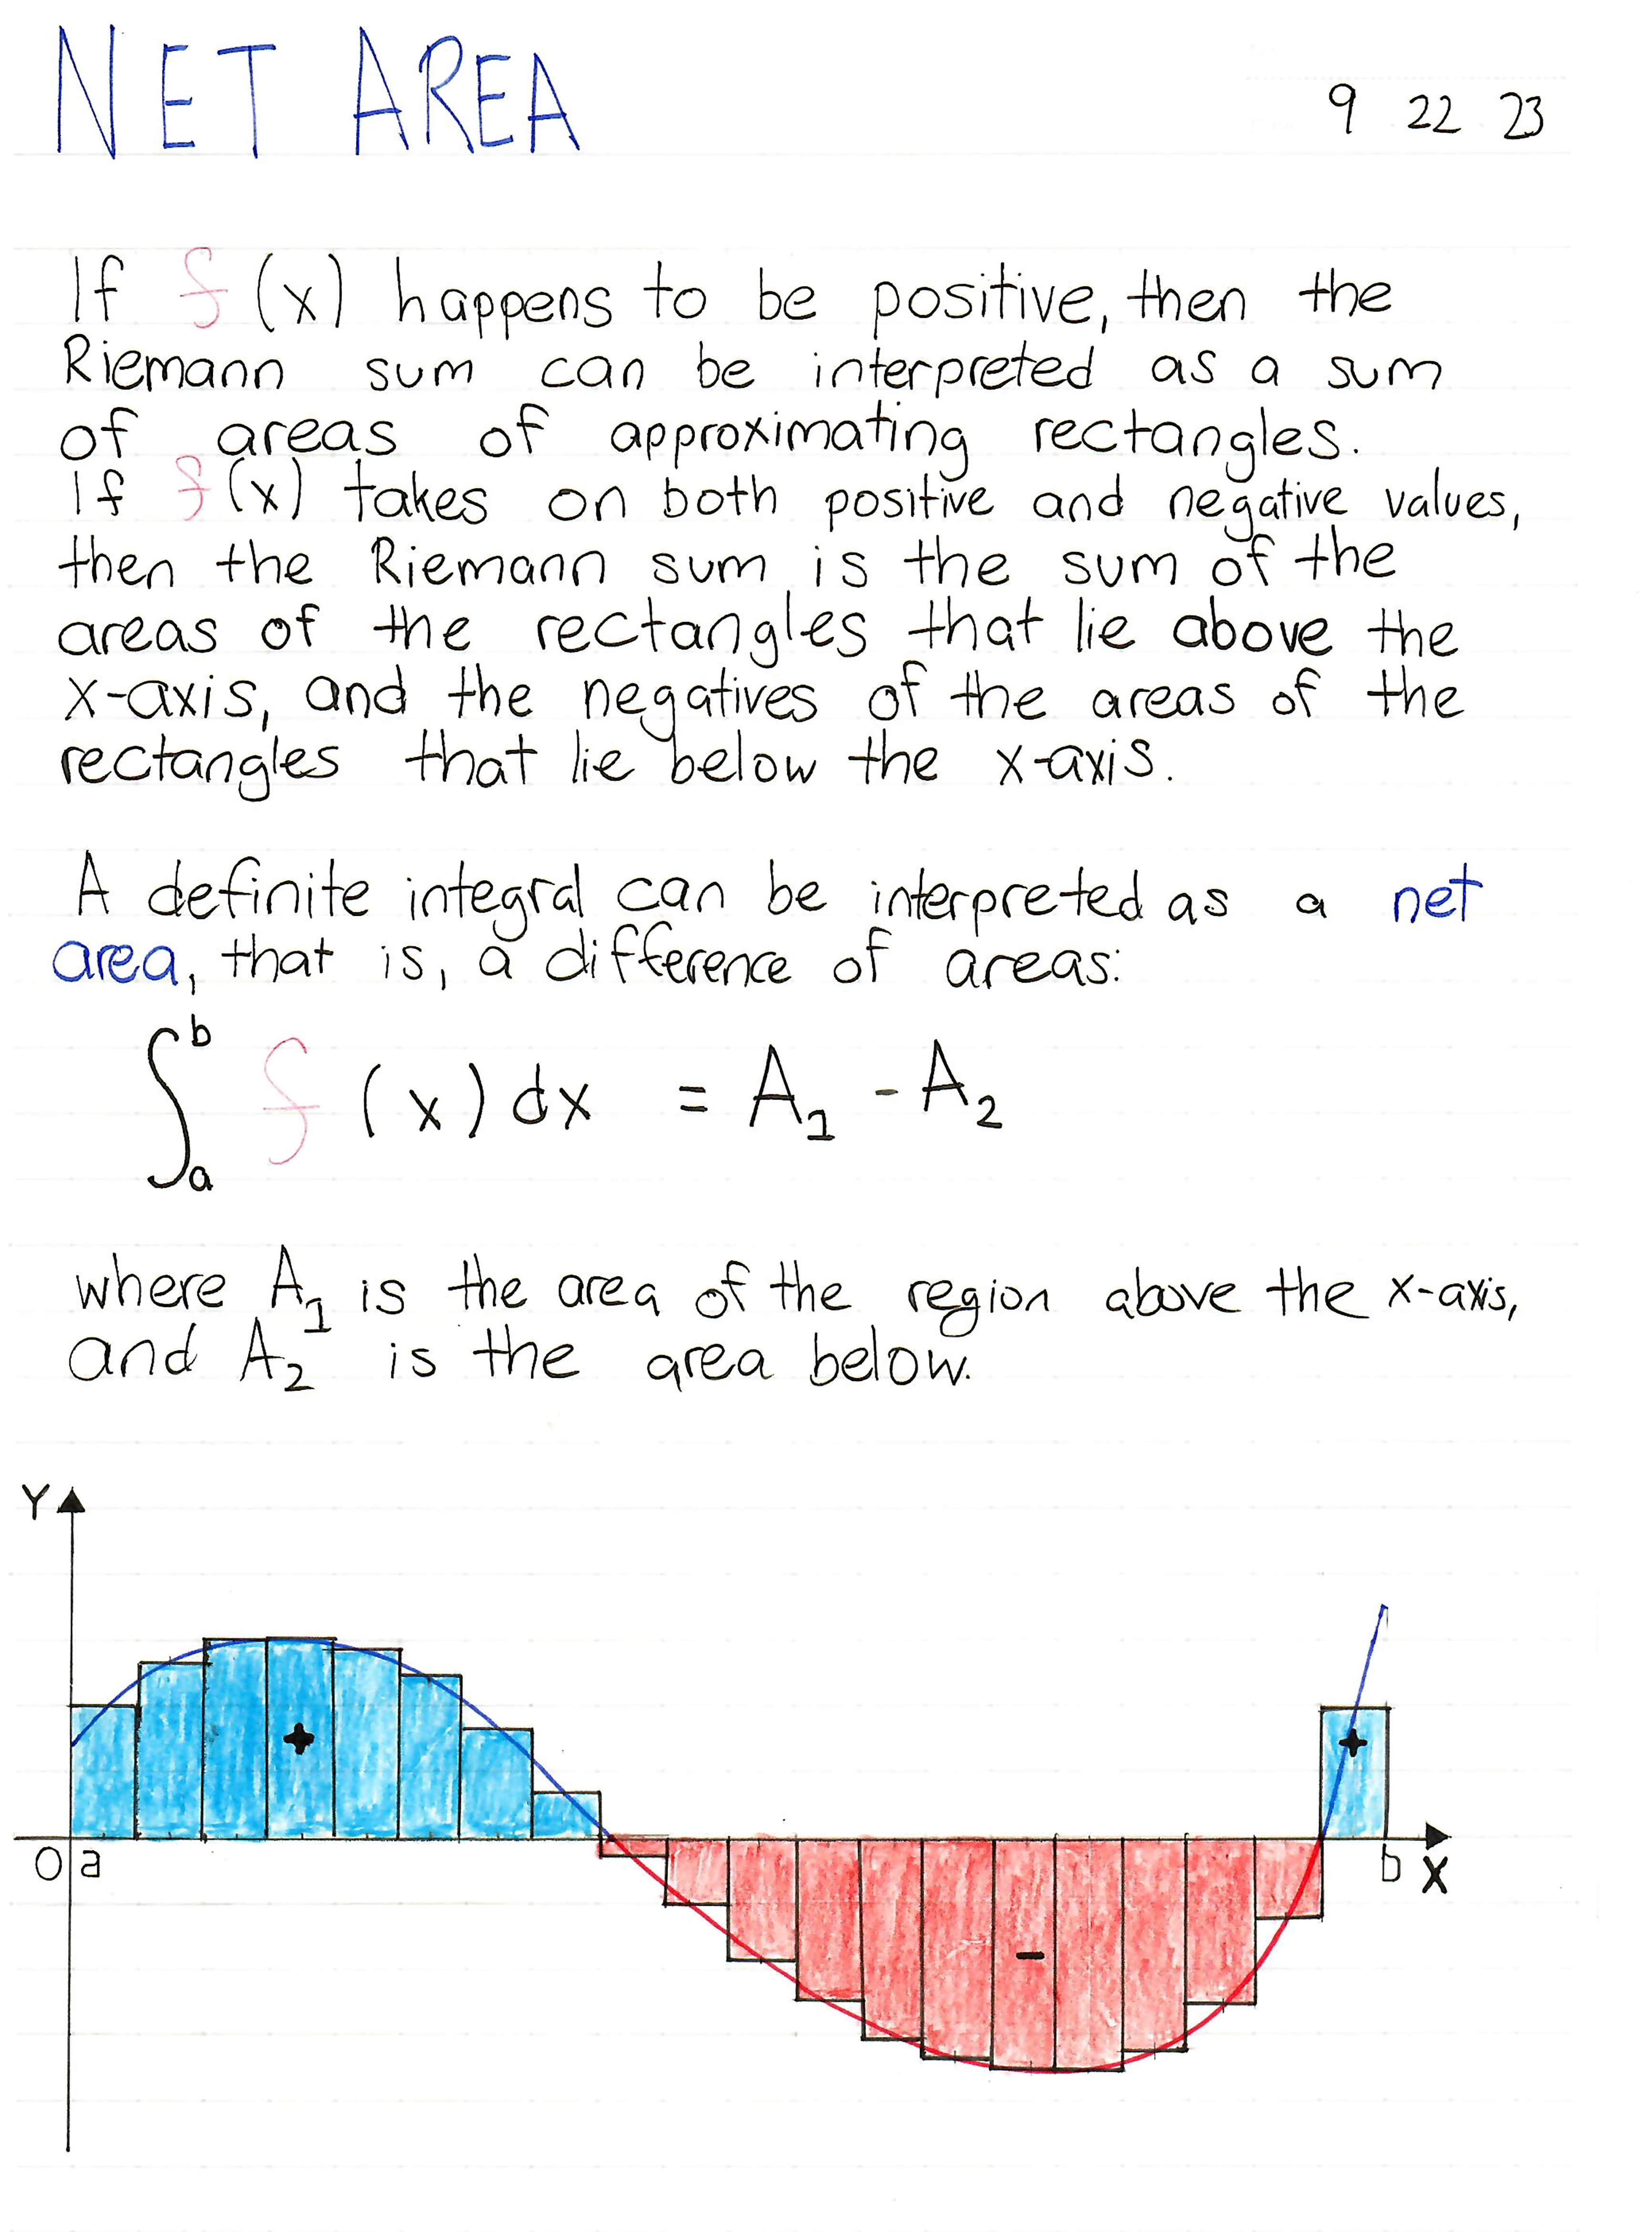 NET AREA
9 22 23
If f(x) happens to be positive, then the
Riemann sum can be interpreted as a sum
of areas of approximating rectangles.
If f(x) takes on both positive and negative values,
then the Riemann sum is the sum of the
areas of the rectangles that lie above the
x-axis, and the negatives of the areas of the
rectangles that lie below the x-axis.
A definite integral can be interpreted as a net
area, that is, a difference of areas:
∫_a^b f(x)dx = A₁ - A₂
where A₁ is the area of the region above the x-axis,
and A₂ is the area below.
Y
+ +
0 a b X
-